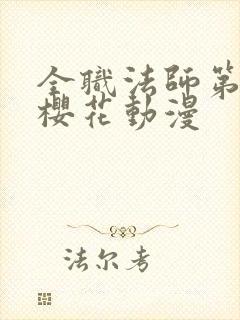 全職法師第
櫻花動漫
法尔考